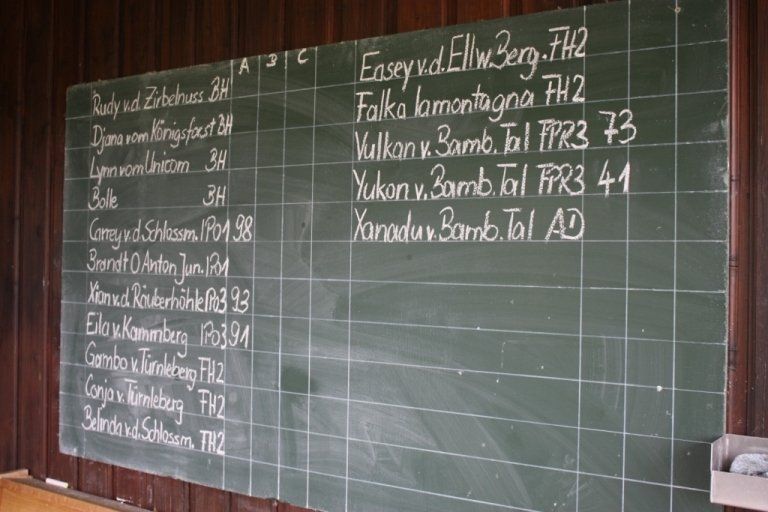 A B C
Rudy v.d. Zirbelnuss BH
Djana vom Königsforst BH
Lynn vom Unicom BH
Bolle BH
Carrey v.d. Schlossm. IPO1 98
Brandt O Anton Jun. IPO1
Xian v.d. Räuberhöhle IPO3 93
Eila v. Kammberg IPO3 91
Gambo v. Türnleberg FH2
Conja v. Türnleberg FH2
Belinda v.d. Schlossm. FH2
Easey v.d. Ellw. Berg. FH2
Falka lamontagna FH2
Vulkan v. Bamb. Tal FPR3 73
Yukon v. Bamb. Tal FPR3 41
Xanadu v. Bamb. Tal AD